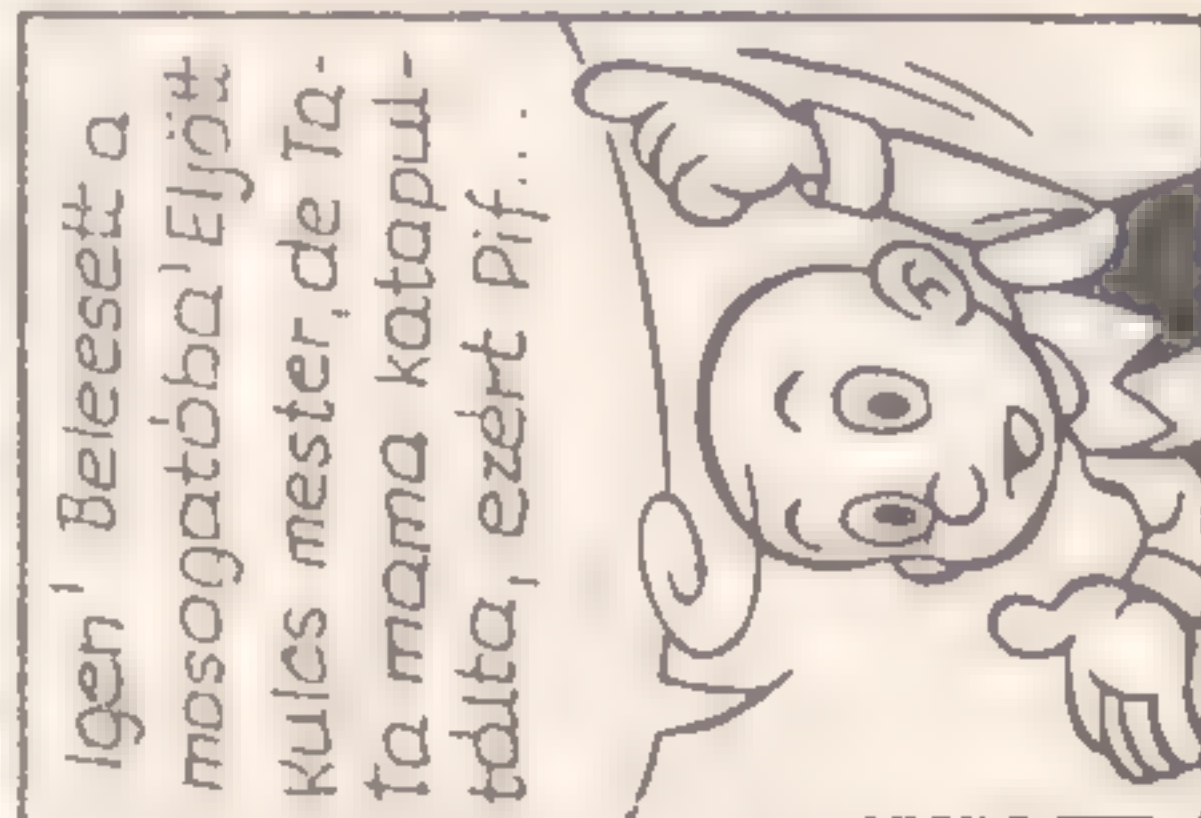 Igen! Beleesett a
mosogatóba! Eljött
Kulcs mester, de Ta-
Ta mama katapul-
tálta, ezért Pif...